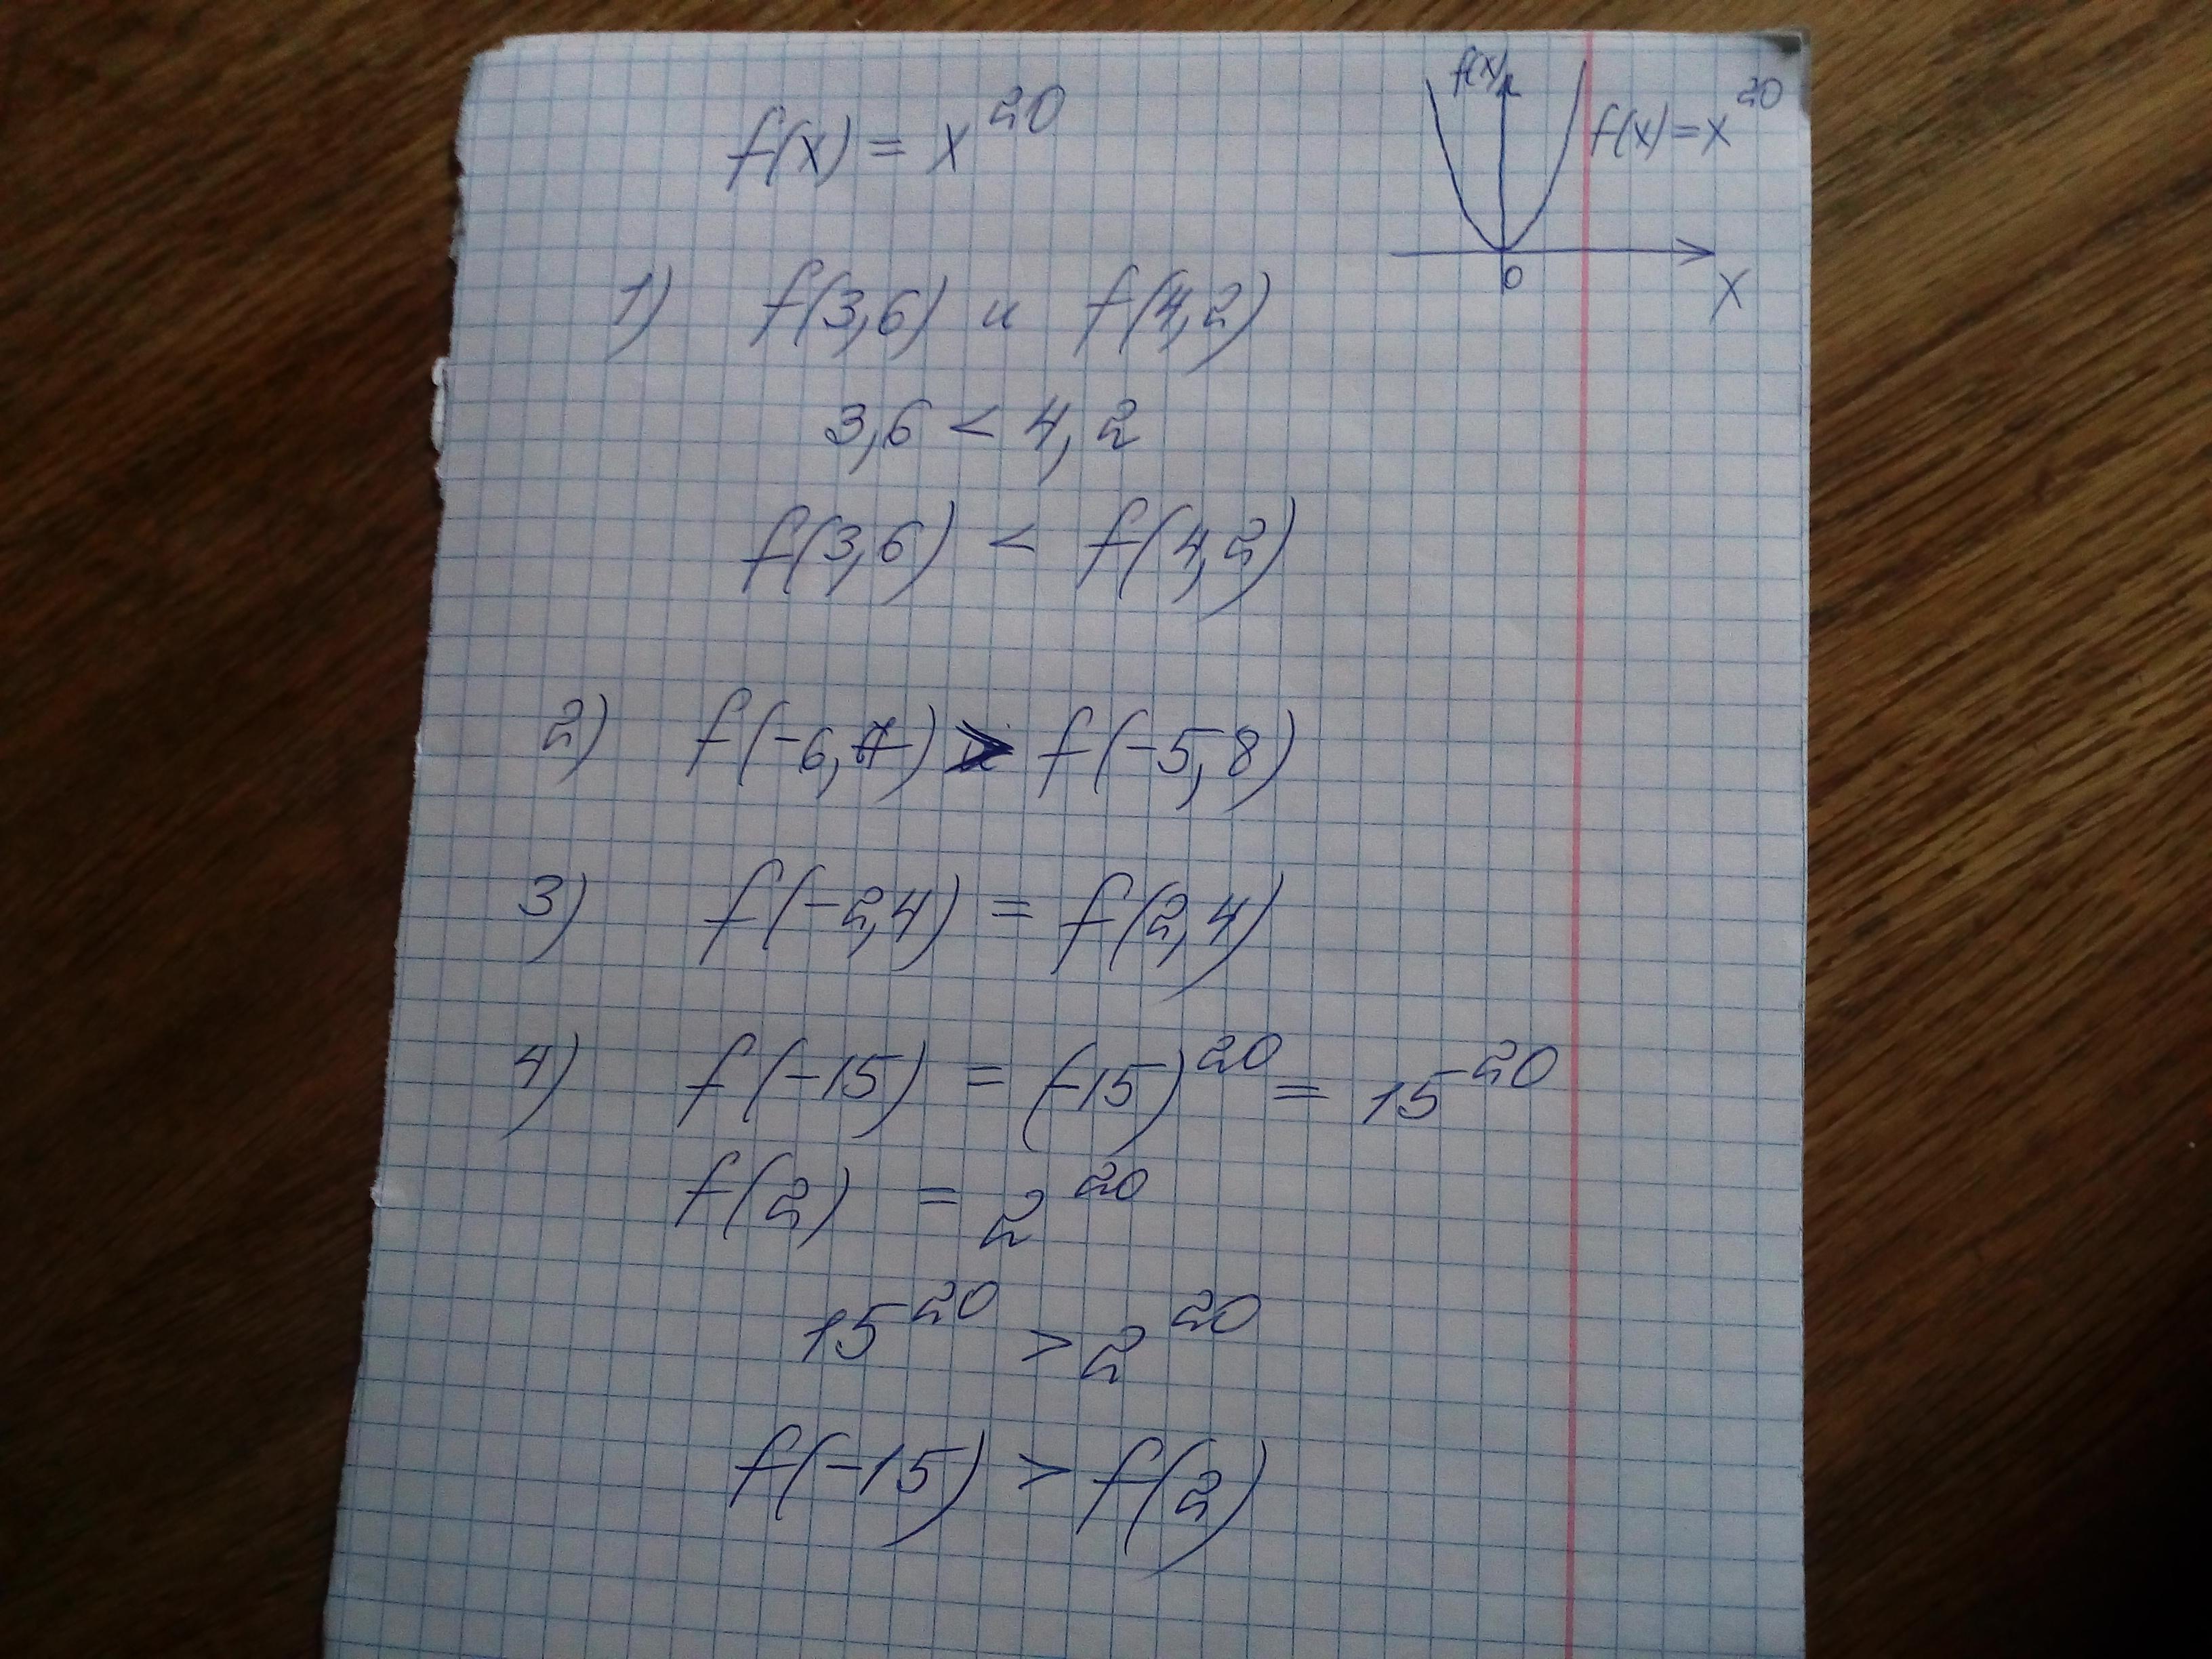 f(x) = x^20
f(x)
f(x)=x^20
0
x
1) f(3,6) и f(4,2)
3,6 < 4,2
f(3,6) < f(4,2)
2) f(-6,7) > f(-5,8)
3) f(-2,4) = f(2,4)
4) f(-15) = (-15)^20 = 15^20
f(2) = 2^20
15^20 > 2^20
f(-15) > f(2)